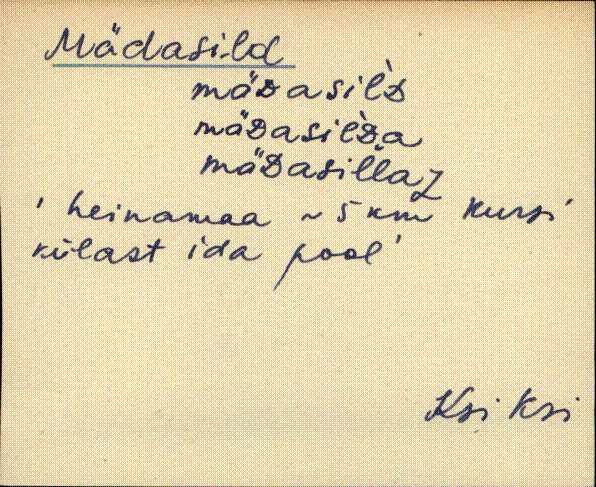 Mädasild
mäᴅasìlᴅ
mäᴅasìlᴅa
mäᴅasìllaz
' heinamaa ~ 5 km Kursi
külast ida pool'
Ksi Ksi